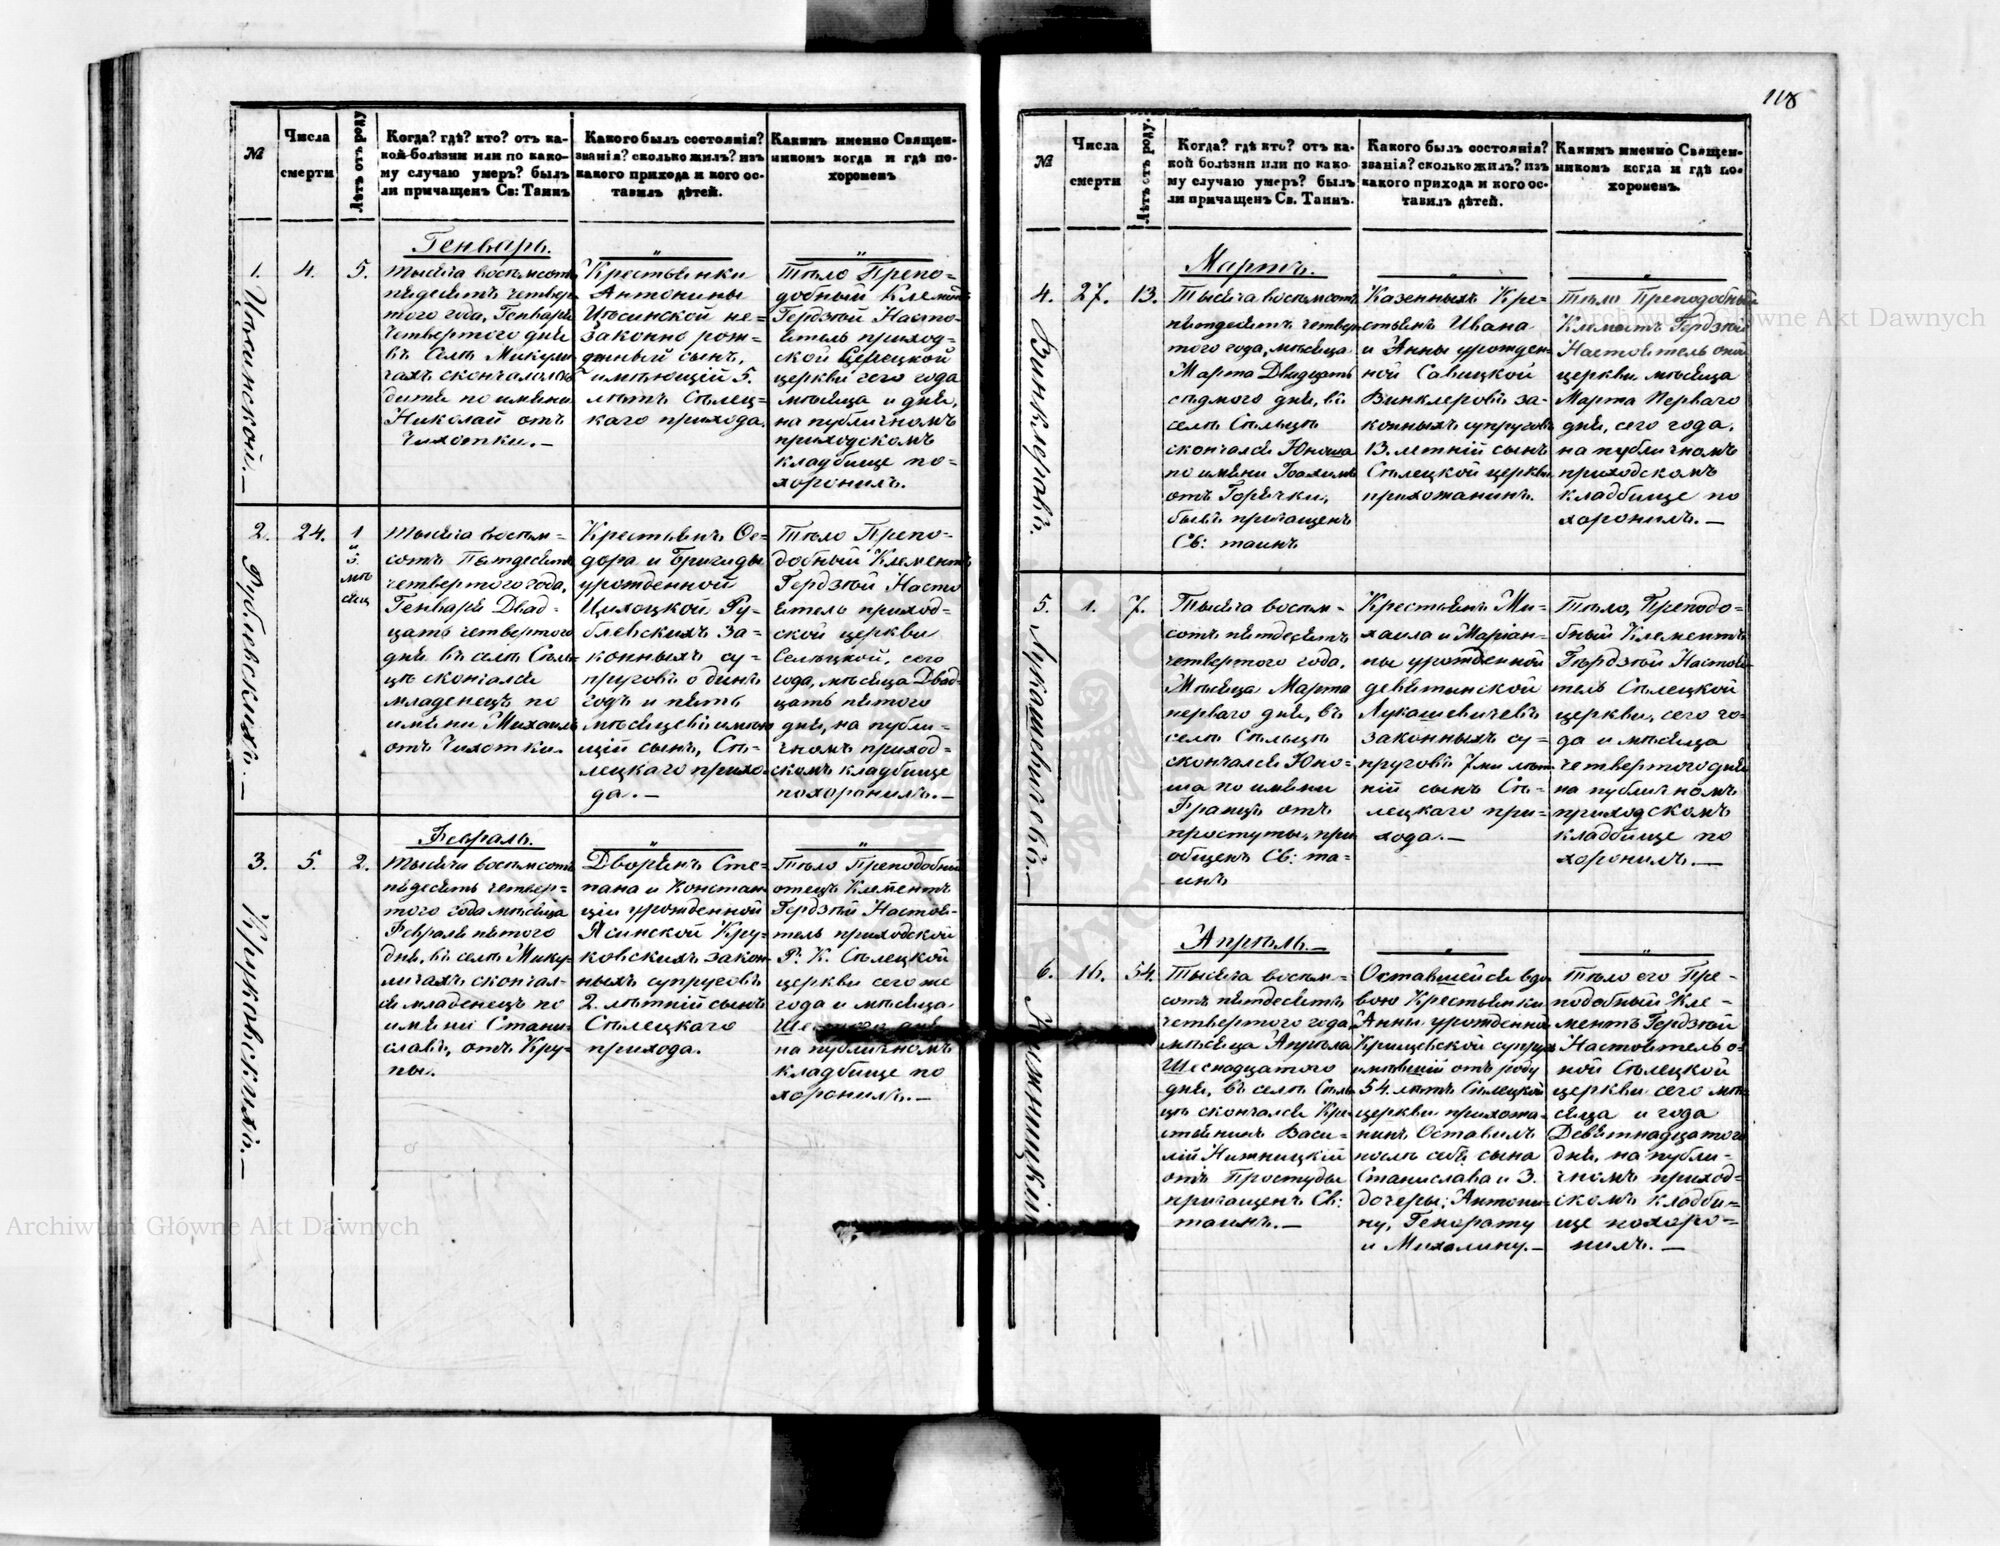 118
№
Числа
смерти
Лѣтъ отъ роду
Когда? гдѣ? кто? отъ ка-
кой болѣзни или по како-
му случаю умеръ? былъ
ли причащенъ Св: Таинъ
Какого былъ состоянія?
званія? сколько жилъ? изъ
какого прихода и кого ос-
тавилъ дѣтей.
Каким именно Священ-
никомъ когда и гдѣ по-
хороненъ
Генварь.
1.
4.
5.
Тысяча восемсотъ
пядесятъ четвер
того года, Генваря
четвертого дня
въ Селѣ Микули
чахъ скончалось
дитя по имени
Николай отъ
Чихотки.—
Крестьянки
Антонины
Цысинской не=
законно рож=
денный сынъ,
имѣющій 5.
лѣтъ Сѣлец=
каго прихода.
Тѣло Препо=
добный Клементъ
Гердзей Насто=
ятель приход=
ской Селецкой
церкви сего года
мѣсяца и дня,
на публичномъ
приходскомъ
кладбище по=
хоронилъ.
2.
Рублевскихъ.—
24.
1
и
5.
мѣ
сяц
Тысяча восем=
сотъ Пятдесятъ
четвертого года,
Генваря Двад=
цать четвертого
дня въ селѣ Сѣль
цѣ скончался
младенецъ по
имени Михаилъ
отъ Чихотки.
Крестьянъ Ѳе=
дора и Бригиды
урожденной
Цихоцкой Ру=
блевскихъ за=
конныхъ су=
пруговъ одинъ
годъ и пять
мѣсяцевъ имею
щій сынъ, Сѣ=
лецкаго прихо
да.—
Тѣло Препо=
добный Клементъ
Гердзей Насто
ятель приход=
ской церкви
Селецкой, сего
года, мѣсяца Двад
цать пятого
дня, на публи=
чномъ приход=
скомъ кладбище
похоронилъ.—
Февраль.
3.
Круковскихъ.—
5.
2.
Тысяча восемсотъ
пядесятъ четвер=
того года мѣсяца
Февраля пятого
дня, въ селѣ Мику
личахъ скончал=
ся младенецъ по
имени Стани=
славъ, отъ Кру=
пы.
Дворянъ Сте=
пана и Констан
ціи урожденной
Ясинской Кру=
ковскихъ закон
ныхъ супруговъ
2. лѣтній сынъ
Сѣлецкаго
прихода.
Тѣло Преподобный
отецъ Клементъ
Гердзей Настоя=
тель приходской
Р. К. Сѣлецкой
церкви сего же
года и мѣсяца
на публичномъ
кладбище по
хоронилъ.—
№
Числа
смерти
Лѣтъ отъ роду.
Когда? гдѣ? кто? отъ ка-
кой болѣзни или по како-
му случаю умеръ? былъ
ли причащенъ Св. Таинъ.
Какого былъ состоянія?
званія? сколько жилъ? изъ
какого прихода и кого ос-
тавилъ дѣтей.
Каким именно Священ-
никомъ когда и гдѣ по-
хороненъ.
Мартъ.
4.
Винклеровъ.
27.
13.
Тысяча восемсотъ
пятдесятъ четвер
того года, мѣсяца
Марта Двадцать
седмого дня, въ
селѣ Сѣльцѣ
скончался Юноша
по имени Іоахимъ
отъ Горячки,
бывъ причащенъ
Св: таинъ
Казенныхъ Кре=
стьянъ Ивана
и Анны урожден=
ной Савицкой
Винклеровъ за=
конныхъ супруговъ
13. летній сынъ
Сѣлецкой церкви
прихожанинъ.
Тѣло Преподобный
Клементъ Гердзей
Настоятель оной
церкви, мѣсяца
Марта Перваго
дня, сего года,
на публичномъ
приходскомъ
кладбище по
хоронилъ.—
5.
Лукашевичовъ.—
1.
7.
Тысяча восем=
сотъ пятдесятъ
четвертого года,
Мѣсяца Марта
перваго дня, въ
селѣ Сѣльцѣ
скончался Юно=
ша по имени
Францъ отъ
простуты, при
общенъ Св: та=
инъ
Крестьянъ Ми=
хаила и Маріан=
ны урожденной
девятынской
Лукашевичевъ
законныхъ су=
пруговъ 7ми лѣт
ній сынъ Сѣ=
лецкаго при=
хода.—
Тѣло, Преподо=
бный Клементъ
Гердзей Настоя=
тель Сѣлецкой
церкви, сего го=
да и мѣсяца
четвертого дня
на публичномъ
приходскомъ
кладбище по
хоронилъ.—
Апрѣль.—
6.
16.
54.
Тысяча восем=
сотъ пятдесятъ
четвертого года,
мѣсяца Апрѣля
Шеснадцатого
дня, въ селѣ Сѣль
цѣ скончался Кре=
стьянинъ Васи=
лій Нижницкій
отъ Простуды
причащенъ Св:
таинъ.—
Оставшейся вдо
вою Крестьянки
Анны урожденной
Крищевской супруг
имѣвшій отъ роду
54. лѣтъ Сѣлецкой
церкви прихожа=
нинъ Оставилъ
послѣ себѣ сына
Станислава и 3.
дочеры: Антони=
ну, Генорату
и Михалину.—
Тѣло его Пре=
подобный Кле=
ментъ Гердзей
Настоятель о=
ной Сѣлецкой
церкви сего мѣ=
сяца и года
Девятнадцатого
дня, на публи=
чномъ приход=
скомъ кладби=
ще похоро=
нилъ.—
Archiwum Główne Akt Dawnych
Archiwum Główne Akt Dawnych